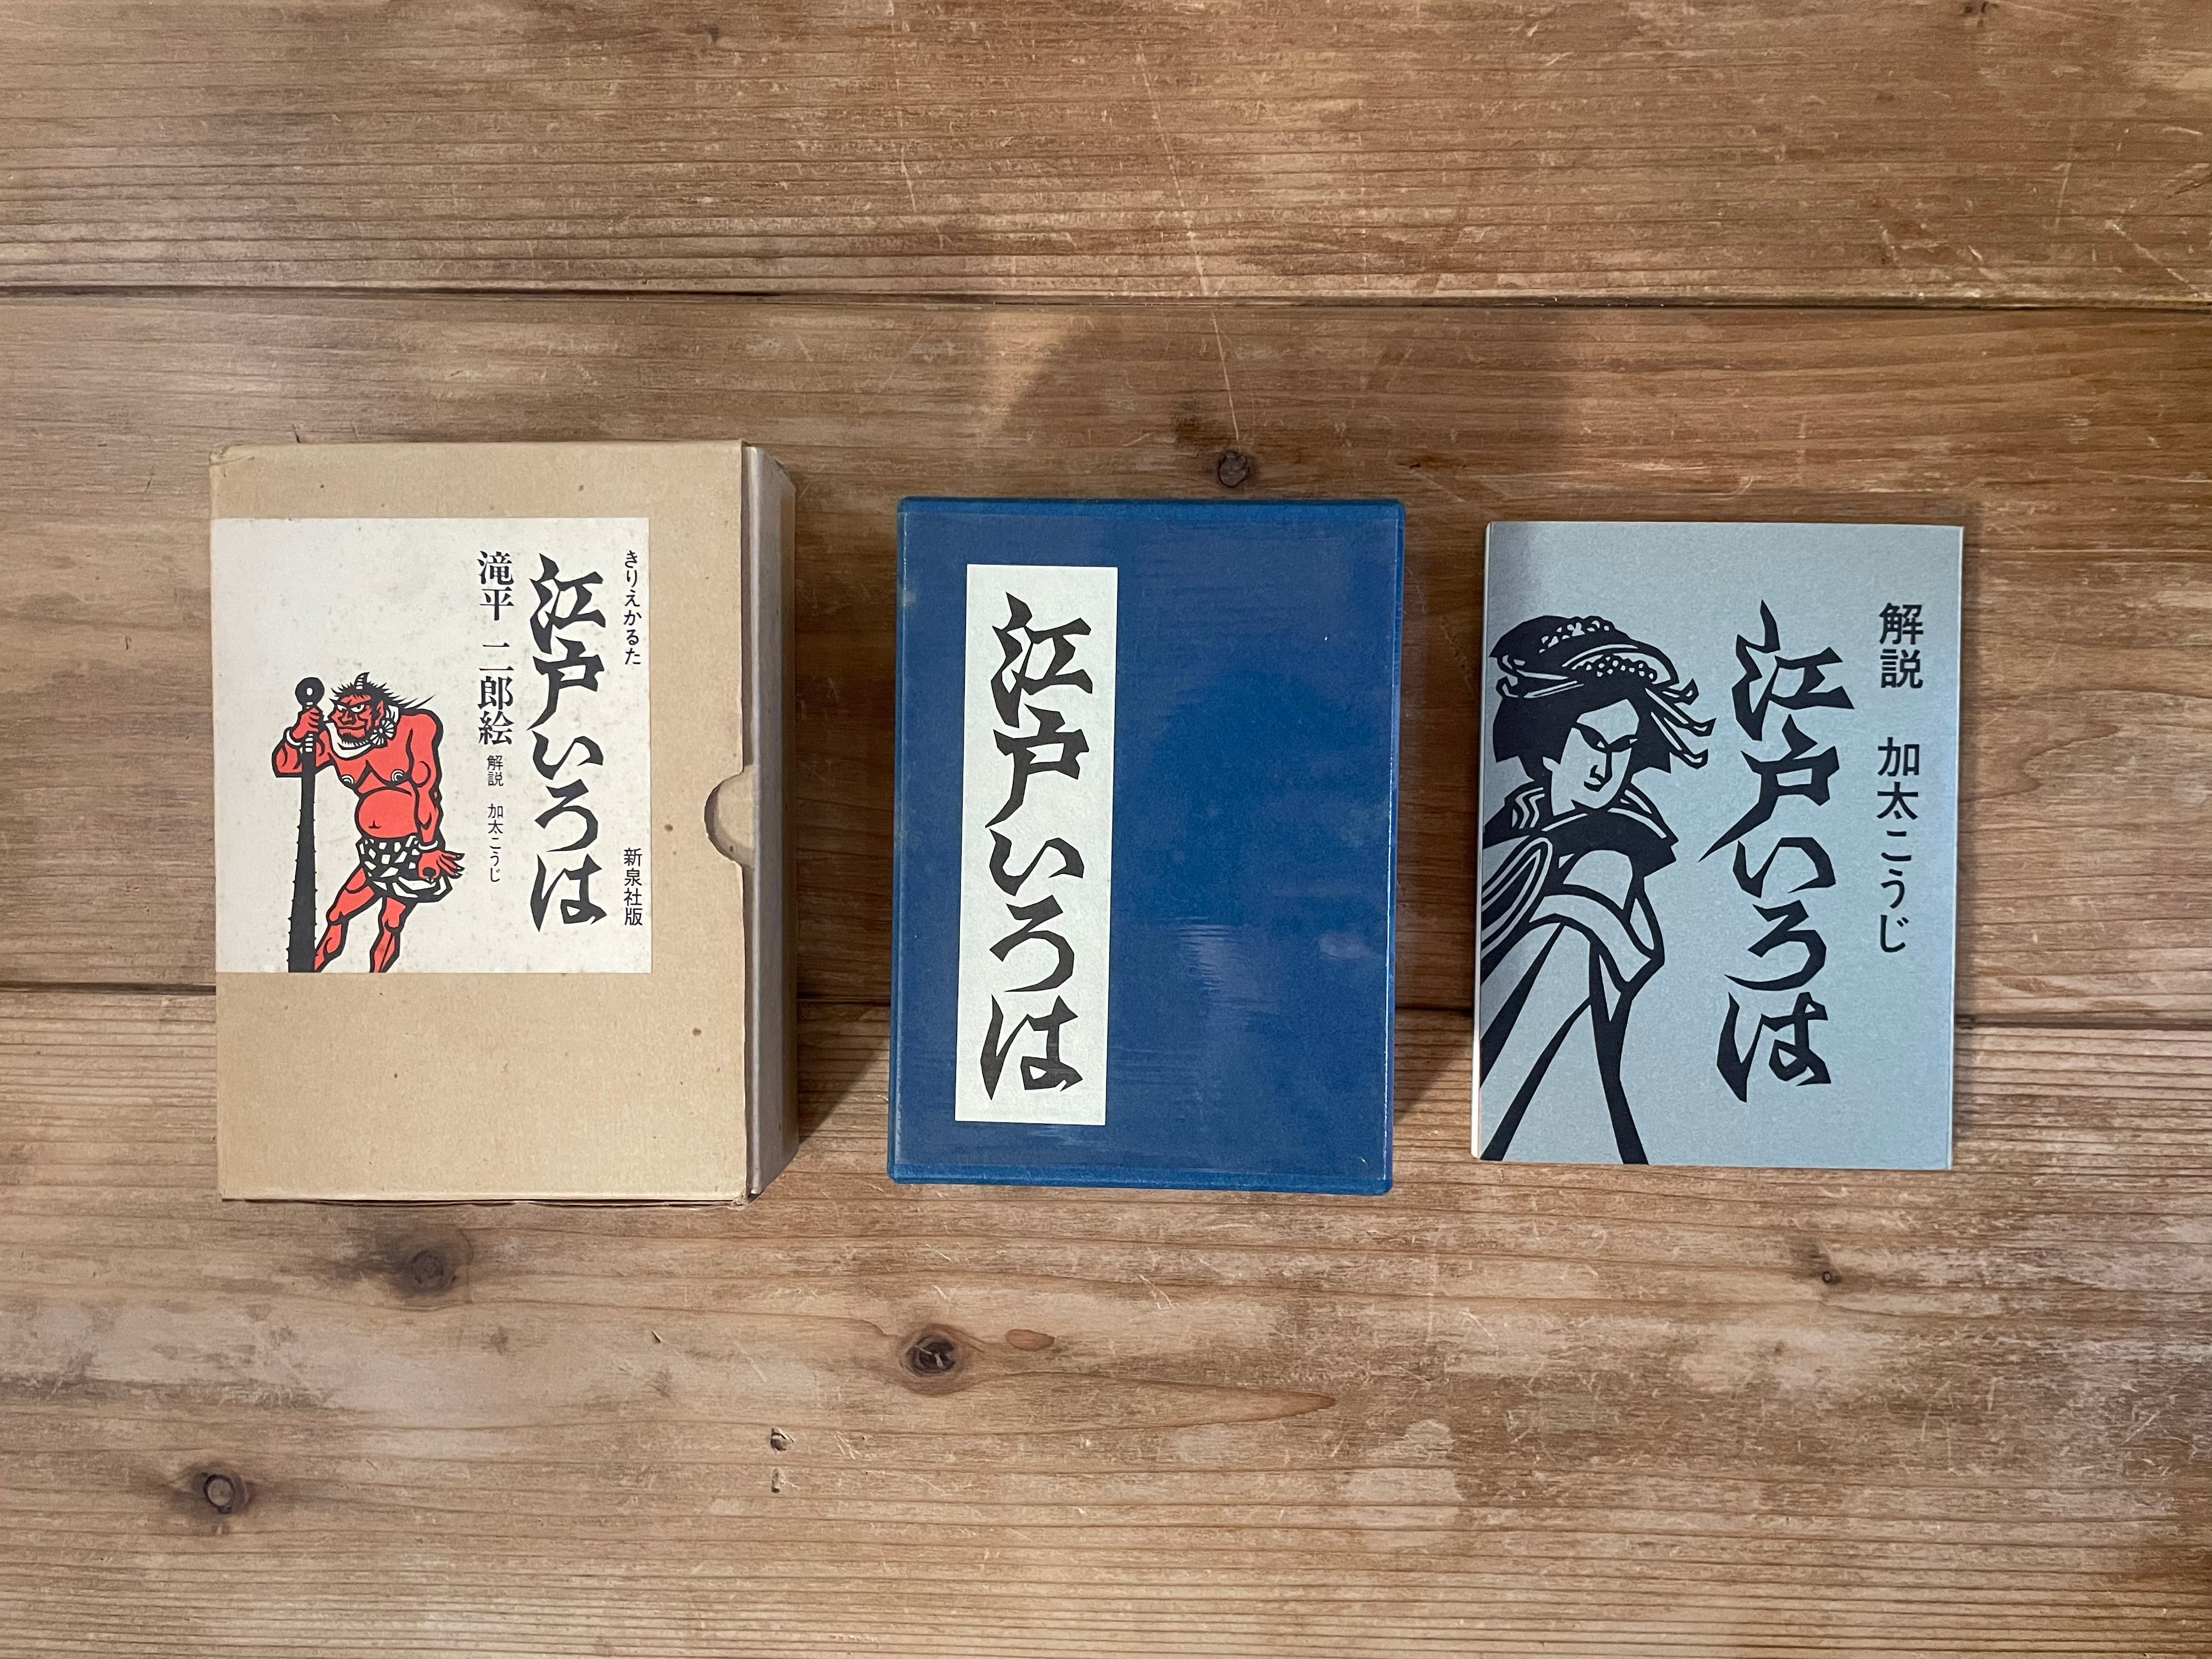 きりえかるた
新泉社版
江戸いろは
滝平 二郎絵
解説 加太こうじ
江戸いろは
解説 加太こうじ
江戸いろは